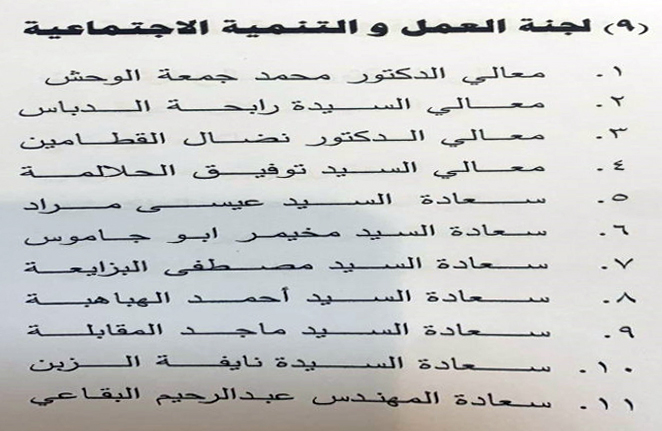 (٩) لجنة العمل و التنمية الاجتماعية
١. معالي الدكتور محمد جمعة الوحش
٢. معالي السيدة رابحة الدباس
٣. معالي الدكتور نضال القطامين
٤. معالي السيد توفيق الحلالمة
٥. سعادة السيد عيسى مراد
٦. سعادة السيد مخيمر ابو جاموس
٧. سعادة السيد مصطفى البزايعة
٨. سعادة السيد أحمد الهباهبة
٩. سعادة السيد ماجد المقابلة
١٠. سعادة السيدة نايفة الزبن
١١. سعادة المهندس عبدالرحيم البقاعي